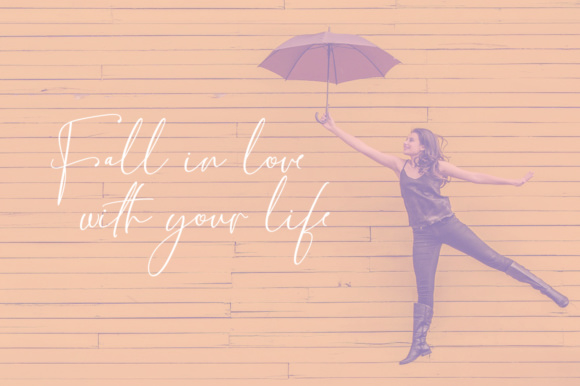 Fall in love
with your life